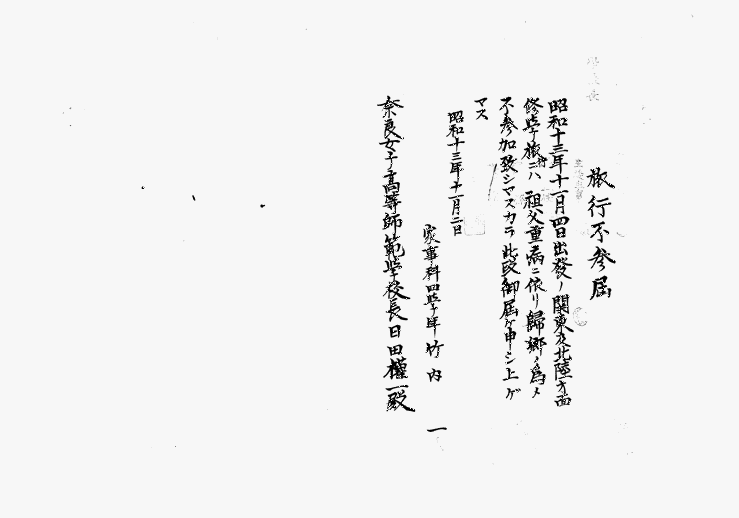 旅行不参届
昭和十三年十一月四日出發ノ関東及北陸方面
修学旅行ニハ祖父重病ニ依リ歸郷ノ爲メ
不参加致シマスカラ此段御届ケ申シ上ゲ
マス
昭和十三年十一月二日
家事科四学年竹内
奈良女子高等師範学校長日田權一殿